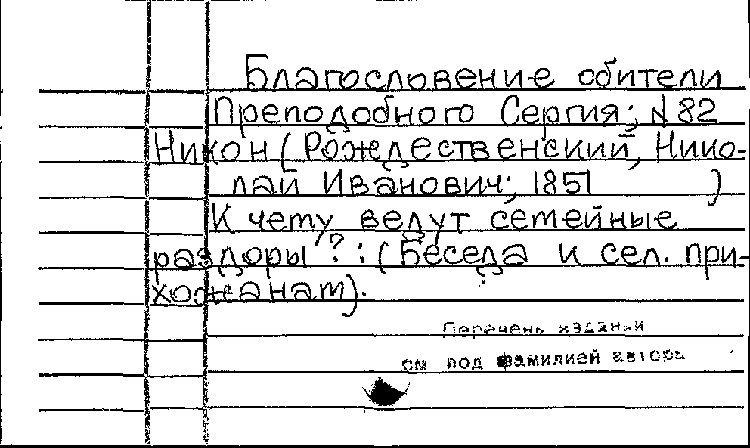 Благословение обители
Преподобного Сергия; № 82
Никон (Рождественский, Нико-
лай Иванович; 1851 )
К чему ведут семейные
раздоры? : (Беседа к сел. при-
хожанам).
Перечень изданий
см под фамилией автора